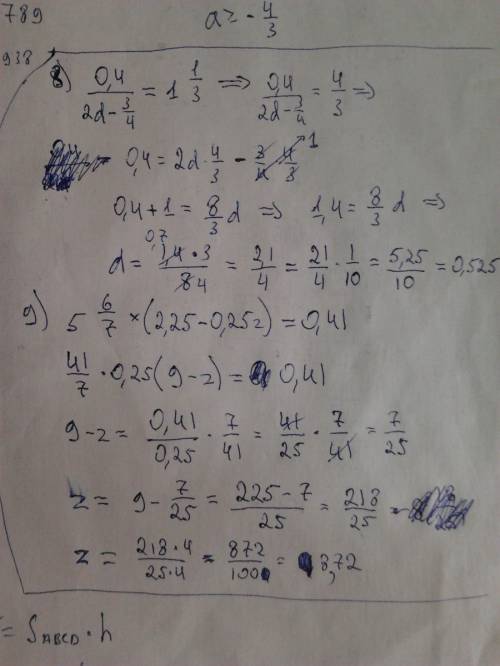 789
a = -4/3
938
8) 0,4/(2d - 3/4) = 1 1/3 ⟹ 0,4/(2d - 3/4) = 4/3 ⟹
0,4 = 2d · 4/3 - 3/4 · 4/3 1
0,4 + 1 = 8/3 d ⟹ 1,4 = 8/3 d ⟹
0,7
d = 1,4 · 3/8 4 = 2,1/4 = 21/4 · 1/10 = 5,25/10 = 0,525
9) 5 6/7 × (2,25 - 0,25z) = 0,41
41/7 · 0,25(9 - z) = 0,41
9 - z = 0,41/0,25 · 7/41 = 41/25 · 7/41 = 7/25
z = 9 - 7/25 = (225 - 7)/25 = 218/25 =
z = 218·4/25·4 = 872/100 = 8,72
= S ABCD · h